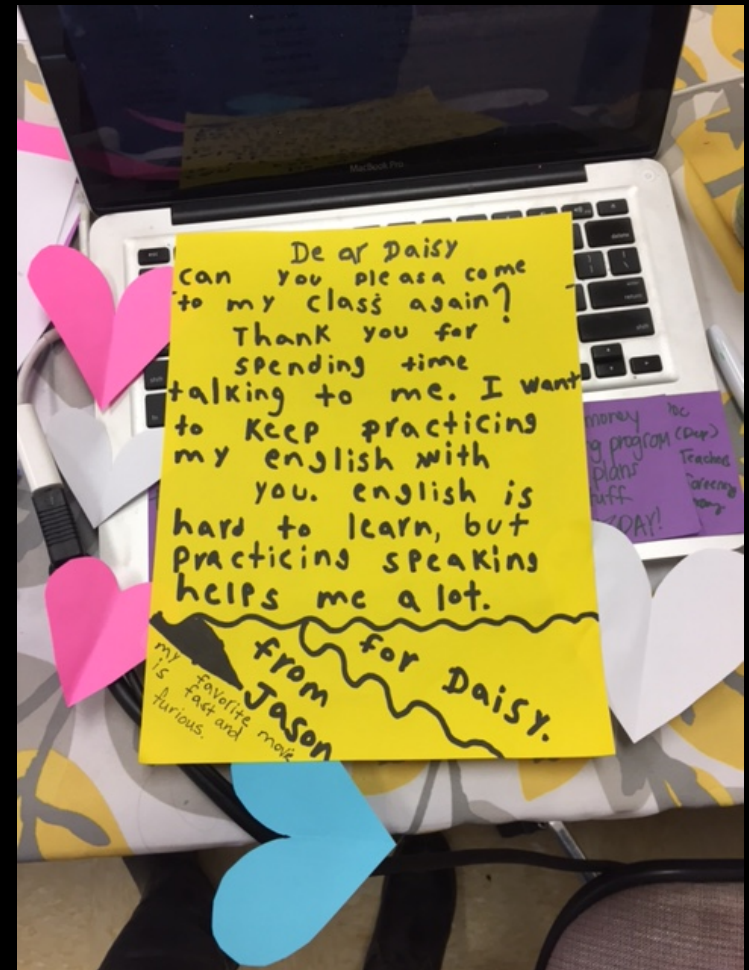 MacBook Pro
De ar Daisy
can you pleasa come
to my class again?
Thank you for
spending time
talking to me. I want
to keep practicing
my english with
you. english is
hard to learn, but
practicing speaking
helps me a lot.
for Daisy.
from
Jason
my favorite movie
is fast and
furious.
delete
return
shift
money
program
plans
DAY!
(Dup)
Teachers